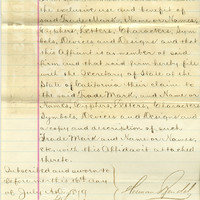 the exclusive use and benefit of
said Trade Mark, Name or Names,
Cyphers, Letters, Characters, Sym-
bols, Devices and Designs and that
this Affiant is a member of said
Firm and that said firm hereby files
with the Secretary of State of the
State of California their claim to
the said Trade Mark, and Name or
Names, Cyphers, Letters, Characters
Symbols, Devices and Designs and
a copy and description of such
Trade Mark and Name or Names,
with this Affidavit attached
thereto.
Subscribed and sworn to
before me this day
of July A.D. 1879